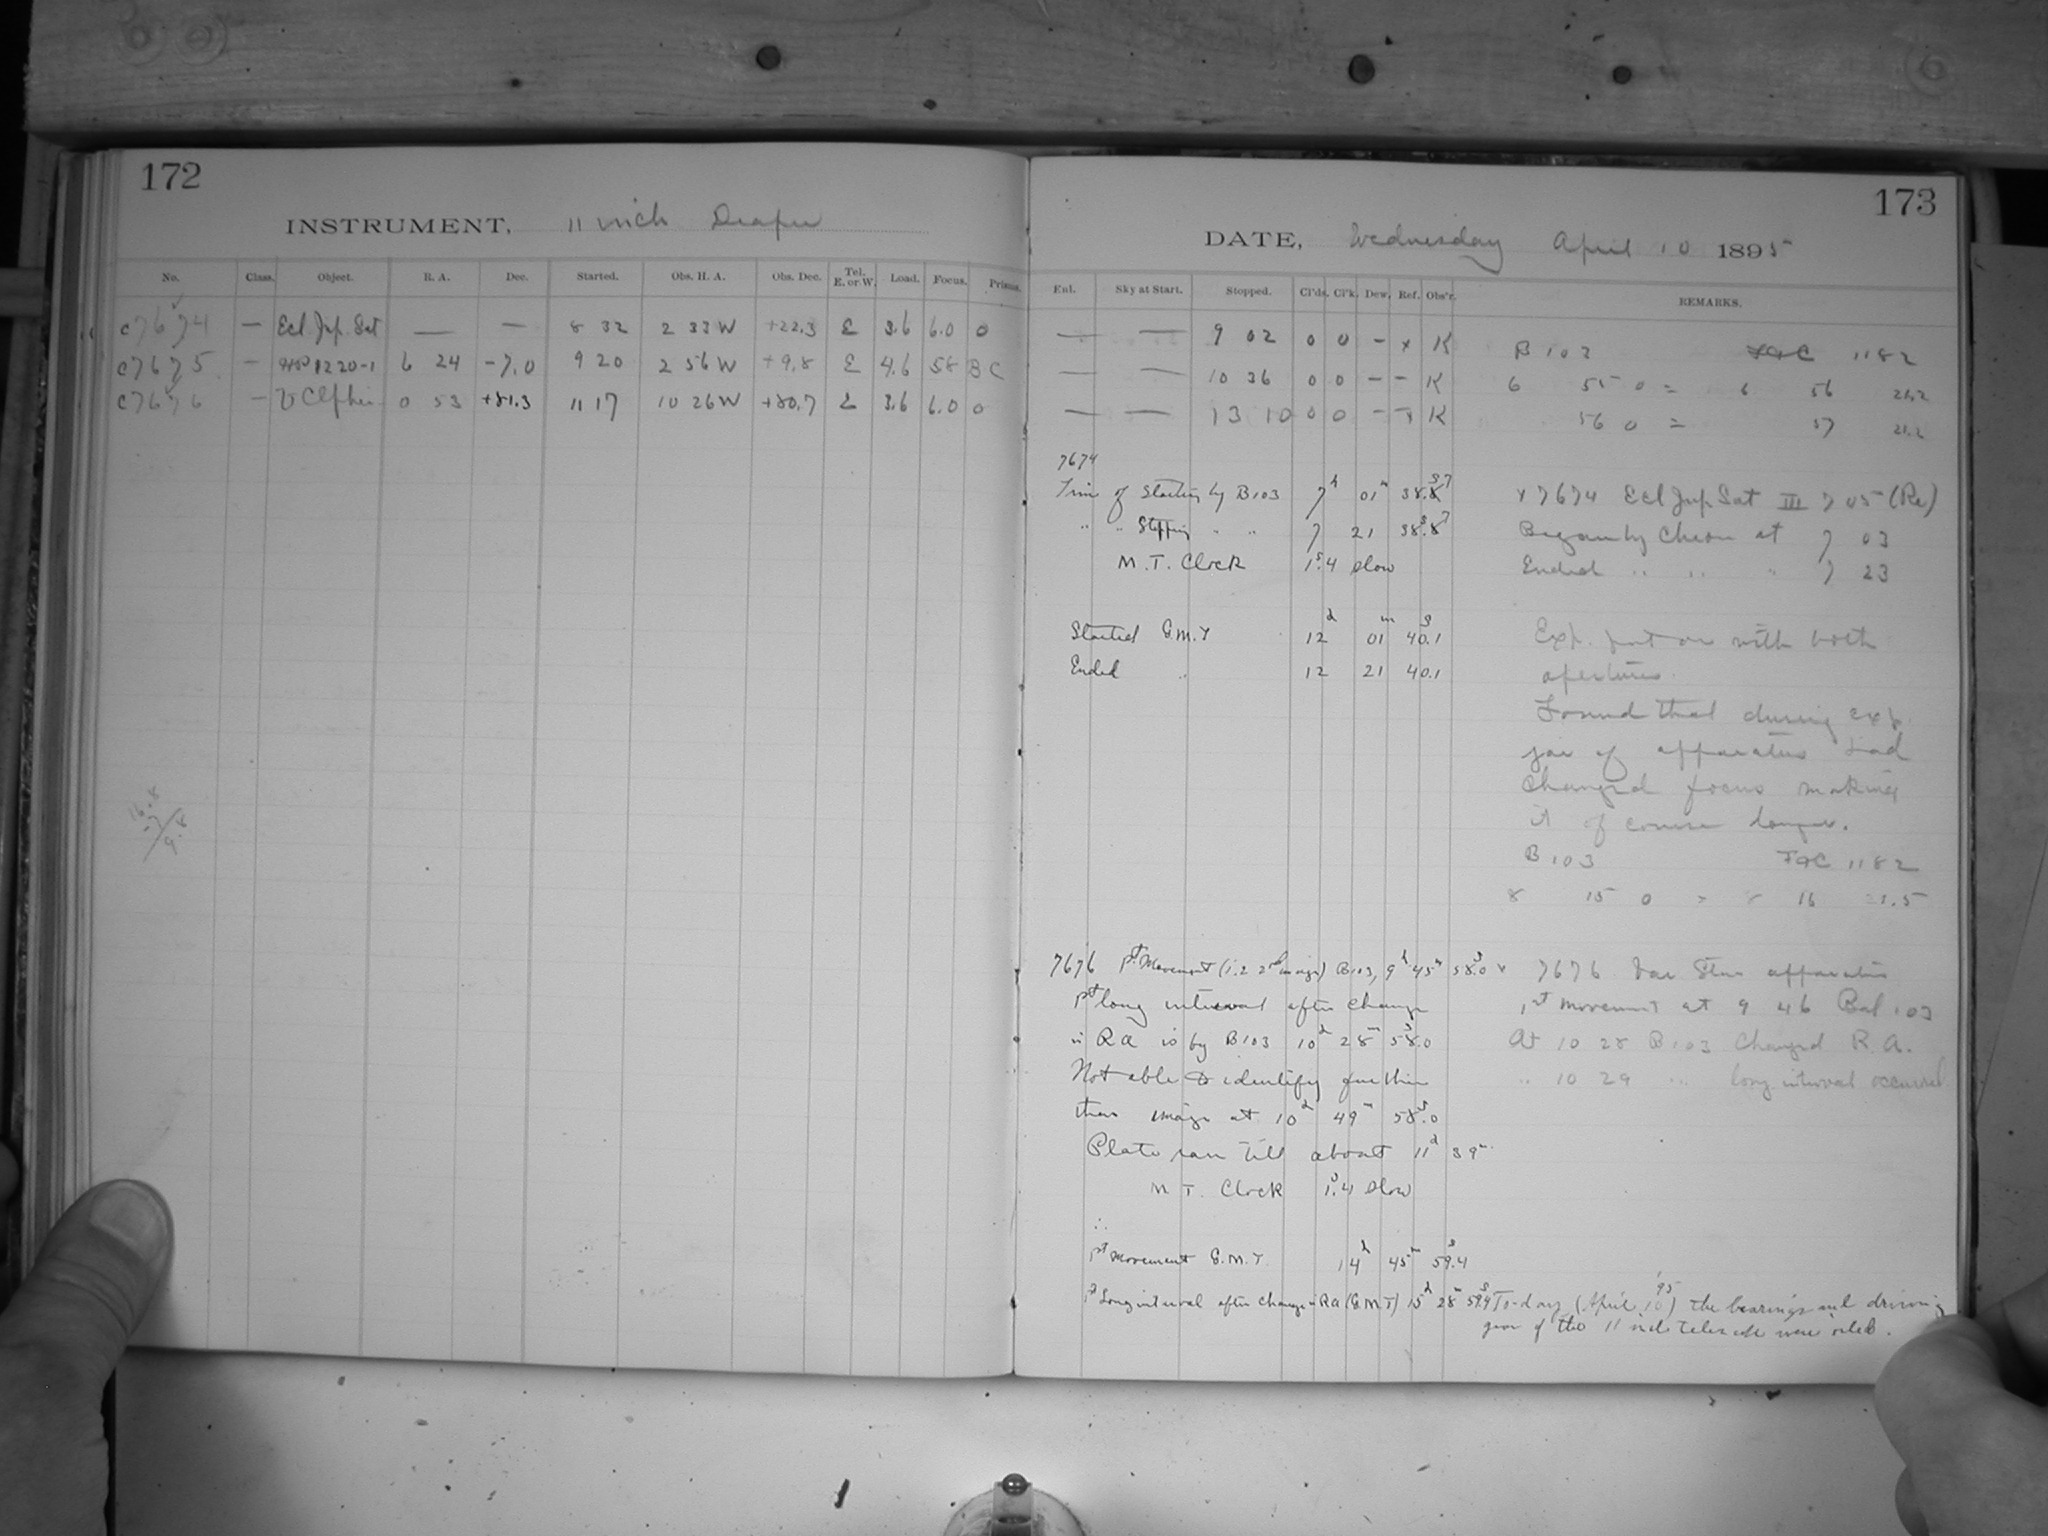 172
INSTRUMENT, 11 inch Draper
No. Class. Object. R. A. Dec. Started. Obs. H. A. Obs. Dec. Tel. E. or W. Load. Focus. Prisms.
c7674 — Ecl. Jup. Sat — — 8 32 2 33 W +22.3 E 3.6 6.0 0
c7675 — 1220-1 6 24 -7.0 9 20 2 56 W +9.8 E 4.6 58 B C
c7676 — U Cephei 0 53 +81.3 11 17 10 26 W +80.7 E 3.6 6.0 0
16.8
9.8
173
DATE, Wednesday April 10 1895
Enl. Sky at Start. Stopped. Cl'ds. Cl'k. Dew. Ref. Obs'r. REMARKS.
— — 9 02 0 0 - x K
— — 10 36 0 0 - - K
— — 13 10 0 0 - x K
B 103 1182
6 55 0 = 6 56 21.2
56 0 = 57 21.2
7674
Time of Starting by B103 7h 01m 38.7s
" " Stopping " " 7 21 38.7s
M. T. Clock 1s.4 slow
Started G.M.T 12h 01m 40.1s
Ended " 12 21 40.1
x 7674 Ecl Jup Sat III 7 05 (Re)
Began by Chron at 7 03
Ended " " " 7 23
Exp. put on with both
apertures.
Found that during exp.
jar of apparatus had
changed focus making
it of course longer.
B 103 1182
8 15 0 = 8 16 21.5
7676 1st Movement (i.e 2nd image) B103, 9h 45m 58s.0
1st long interval after change
in RA is by B103 10h 28m 58s.0
Not able to identify further
than image at 10h 49m 58s.0
Plate ran till about 11h 39m
M T. Clock 1s.4 slow
∴
1st Movement G.M.T. 14h 45m 59s.4
1st Long interval after change in RA (G.M.T) 15h 28m 59s.4
x 7676 Var Star apparatus
1st movement at 9 46 Bal 103
At 10 28 B103 Changed R. A.
" 10 29 " long interval occurred
To-day (April 10, '95) the bearings and driving
gear of the 11 inch telescope were oiled.